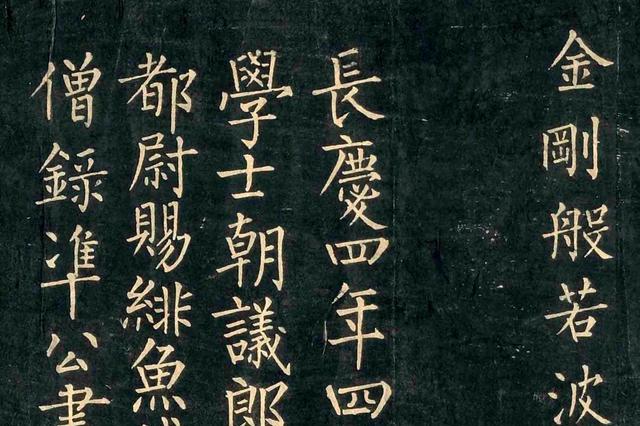 金剛般若波
長慶四年四
學士朝議郎
都尉賜緋魚
僧錄準公書